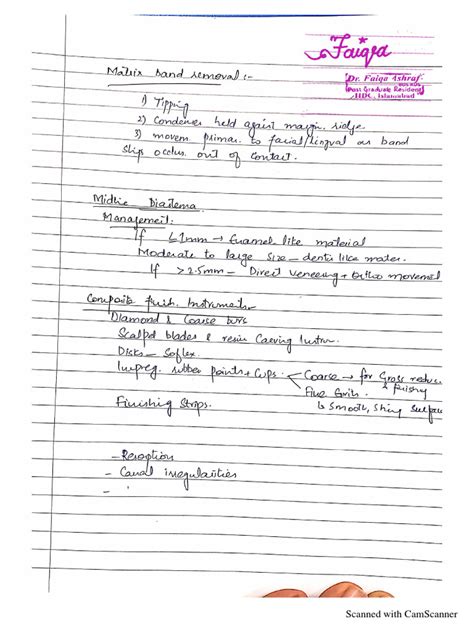 Faiqa
Dr. Faiqa Ashraf
Post Graduate Resident
Islamabad
Matrix band removal :-
1) Tipping
2) Condenser held against margin. ridge.
3) movem primar. to facial/lingual as band
slips occlus. out of contact.
Midline Diastema
Management.
If ≤1mm → Enamel like material
Moderate to large size – dentin like mater.
If >2.5mm – Direct veneering + Ortho movement
Composite finish. Instruments
Diamond & Coarse burs
Scalpel blades & resin Carving Instrum.
Disks – Soflex
Impreg. rubber points + Cups. Coarse → for Gross reduce
& finishing
Fine Grits.
Smooth, Shiny Surface
Finishing Strips.
– Resorption
– Canal irregularities
–
Scanned with CamScanner